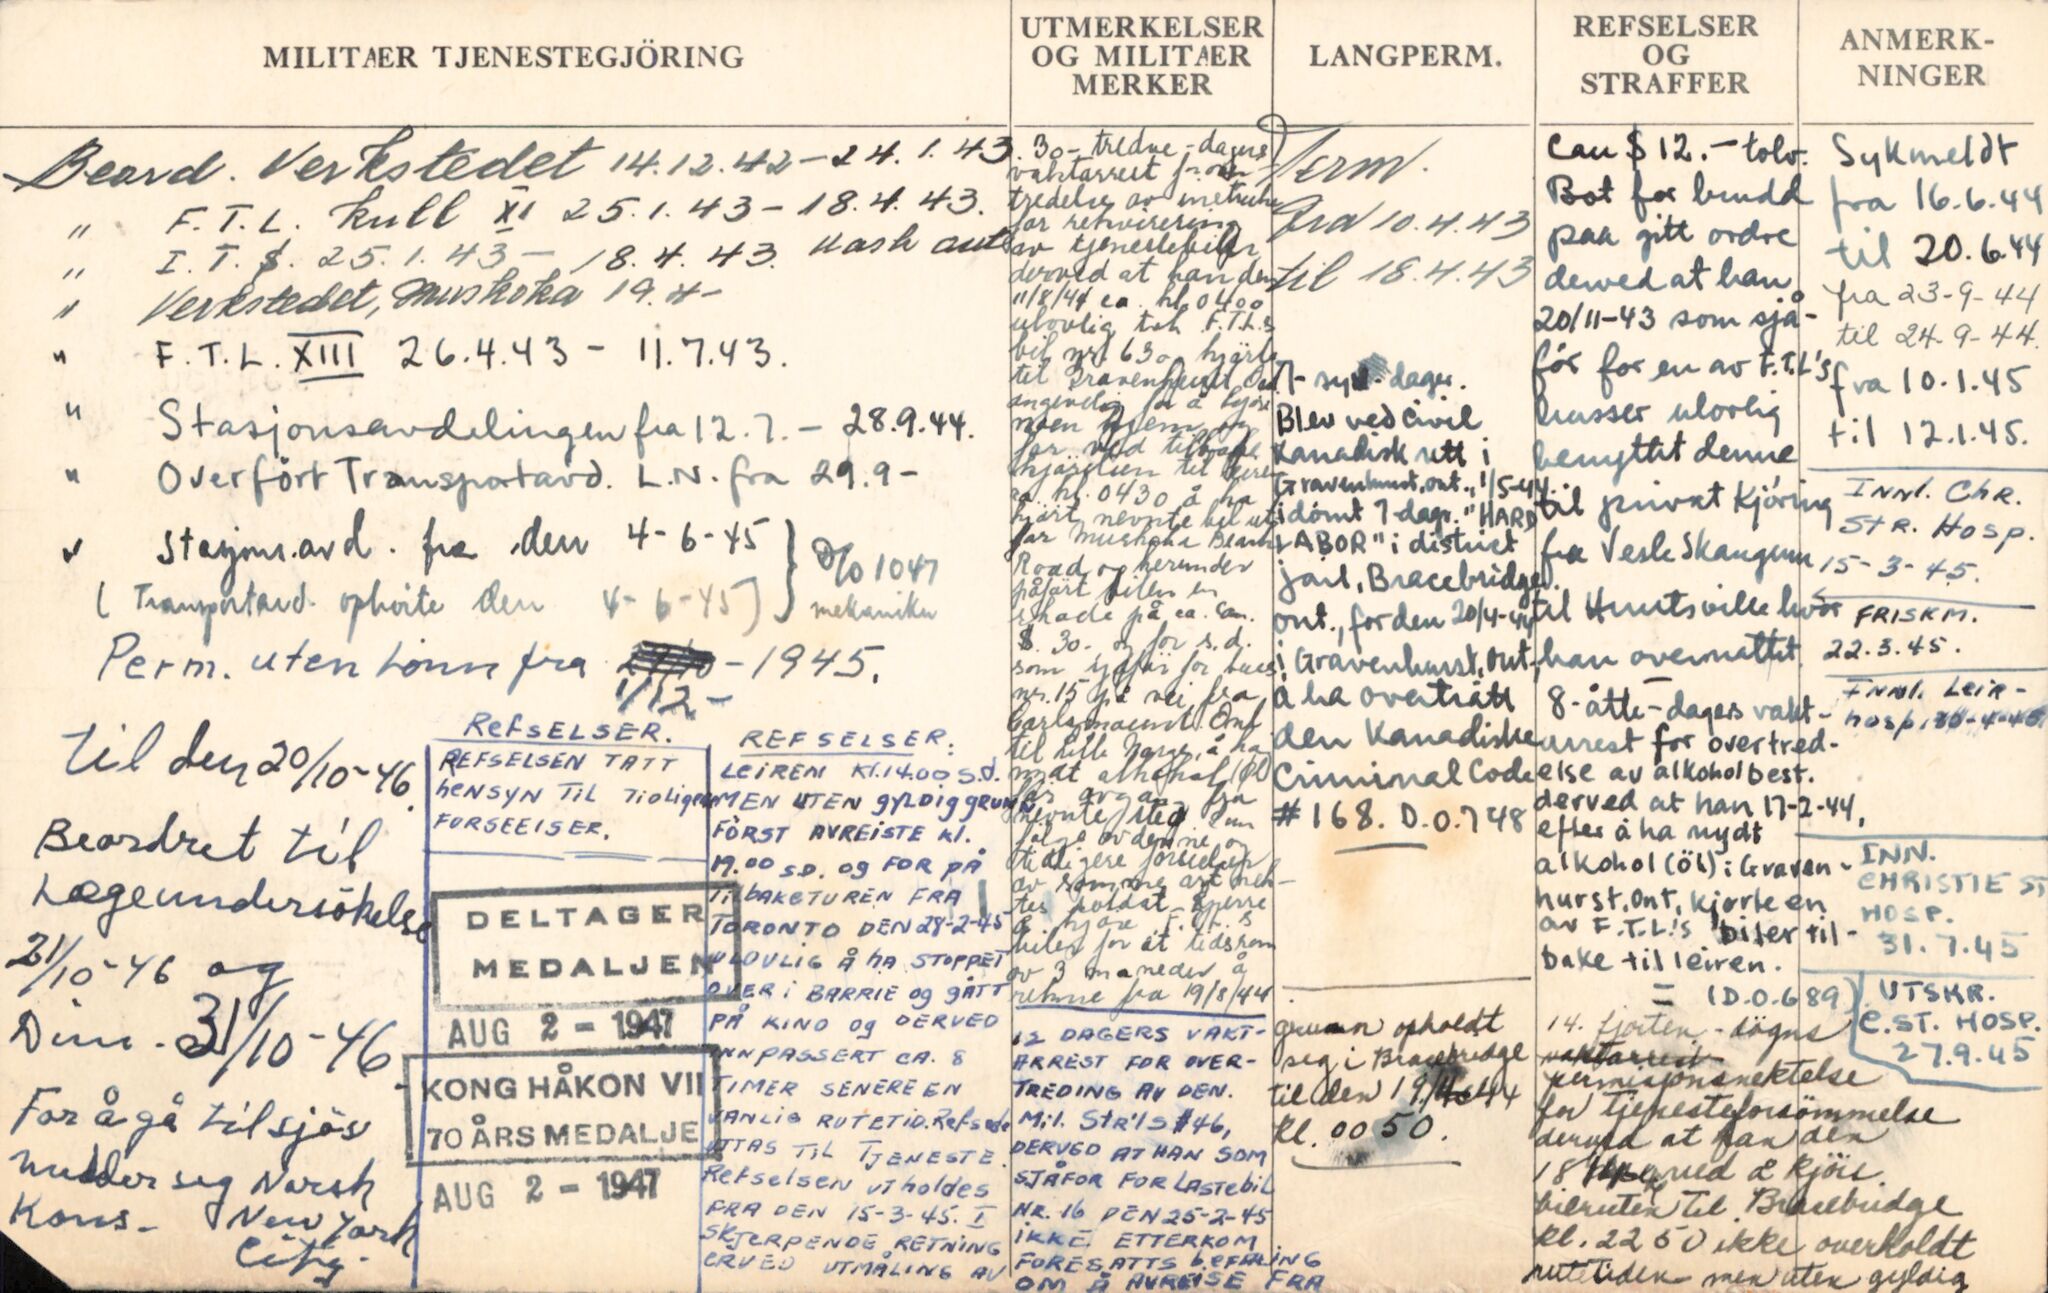 MILITÆR TJENESTEGJÖRING
Beord. Verkstedet 14.12.42 – 24.1.43
" F.T.L. kull XI 25.1.43 – 18.4.43.
" I.T.S. 25.1.43 – 18.4.43.
" Verkstedet, Muskoka 19.4–
" F.T.L. XIII 26.4.43 – 11.7.43.
" Stasjonsavdelingen fra 12.7. – 28.9.44.
" Overfört Transportavd. L.N. fra 29.9–
" Stasjons.avd. fra den 4-6-45
(Transportavd. ophörte den 4-6-45)
D/O 1047
mekaniker
Perm. uten Lönn fra
1/12 – 1945.
til den 20/10-46
Beordret til
Lægeundersökelse
21/10-46 og
Dim. 31/10-46
For å gå til sjös
melder seg Norsk
Kons– New York
City.
REFSELSER.
REFSELSEN TATT
HENSYN TIL TIDLIGERE
FORSEELSER.
DELTAGER
MEDALJEN
AUG 2 - 1947
KONG HÅKON VII
70 ÅRS MEDALJE
AUG 2 - 1947
REFSELSER.
LEIREN KL.14.00 S.D.
MEN UTEN GYLDIG GRUNN
FÖRST AVREISTE KL.
19.00 S.D. OG FOR PÅ
TILBAKETUREN FRA
TORONTO DEN 28-2-45
ULOVLIG Å HA STOPPET
OVER I BARRIE OG GÅTT
PÅ KINO OG DERVED
INNPASSERT CA. 8
TIMER SENERE EN
VANLIG RUTETID. Refsede
UTTAS TIL TJENESTE.
REFSELSEN UTHOLDES
FRA DEN 15-3-45. I
SKJERPENDE RETNING
ERVED UTMÅLING AV
UTMERKELSER
OG MILITÆR
MERKER
30 – tredve – dagers
vaktarrest for
tredelse av
for rekvirering
av tjenestebiler
derved at han den
11/8/44 ca. kl. 0400
ulovlig tok F.T.L.s
bil nr. 630
til Gravenhurst
angivelig for å kjøre
noen hjem og
for ved
til leiren
ca. kl. 0430 å ha
kjört nevnte bil ut
for Muskoka Beach
Road og herunder
påfört bilen en
skade på ca. Can.
$ 30.- og for s.d.
som sjåfør for buss
nr. 15 på vei fra
til Lille Norge, å ha
alkohol (Øl)
fra
nevnte sted. Som
følge av denne og
tidligere forseelser
av samme art
tes soldat
å kjøre F.T.L.s
biler for et tidsrom
av 3 måneder å
rekne fra 19/8/44
12 DAGERS VAKT-
ARREST FOR OVER-
TREDING AV DEN.
Mil. Str'ls #46,
DERVED AT HAN SOM
SJÅFOR FOR LASTEBIL
NR. 16 DEN 25-2-45
IKKE ETTERKOM
FORESATTS BEFALING
OM Å AVREISE FRA
LANGPERM.
Perm.
fra 10.4.43
til 18.4.43
7- syv- dager.
Blev ved civil
Kanadisk rett i
Gravenhurst, Ont., 1/5-44
idömt 7 dagr. "HARD
LABOR" i district
jail, Bracebridge
Ont., for den 20/4-44
i Gravenhurst, Ont.,
å ha overtrått
den Kanadiske
Criminal Code
# 168. D.O.748
grunn opholdt
seg i Bracebridge
til den
kl. 0050.
REFSELSER
OG
STRAFFER
Can $ 12.– tolv.
Bot for brudd
paa gitt ordre
derved at han
20/11-43 som sjå-
för for en av F.T.L's
busser ulovlig
benyttet denne
til privat kjöring
fra Vesle Skaugum
til Huntsville hvor
han overnattet
8- åtte- dagers vakt-
arrest for overtred-
else av alkoholbest.
derved at han 17-2-44,
efter å ha nydt
alkohol (öl) i Graven-
hurst, Ont, kjorte en
av F.T.L.'s biler til-
bake til leiren.
= (D.O.689)
14. fjorten – dögns
vaktarrest
permisjonsnektelse
for tjenesteforsömmelse
derved at han den
18 ved å kjöre
bilruten til Bracebridge
kl. 2250 ikke overholdt
rutetiden men uten gyldig
ANMERK-
NINGER
Sykmeldt
fra 16.6.44
til 20.6.44
fra 23-9-44
til 24-9-44.
fra 10.1.45
til 12.1.45.
INNL. CHR.
STR. HOSP.
15-3-45.
FRISKM.
22.3.45.
INNL. LEIR-
HOSP.
INN.
CHRISTIE ST
HOSP.
31.7.45
UTSKR.
C.ST. HOSP.
27.9.45